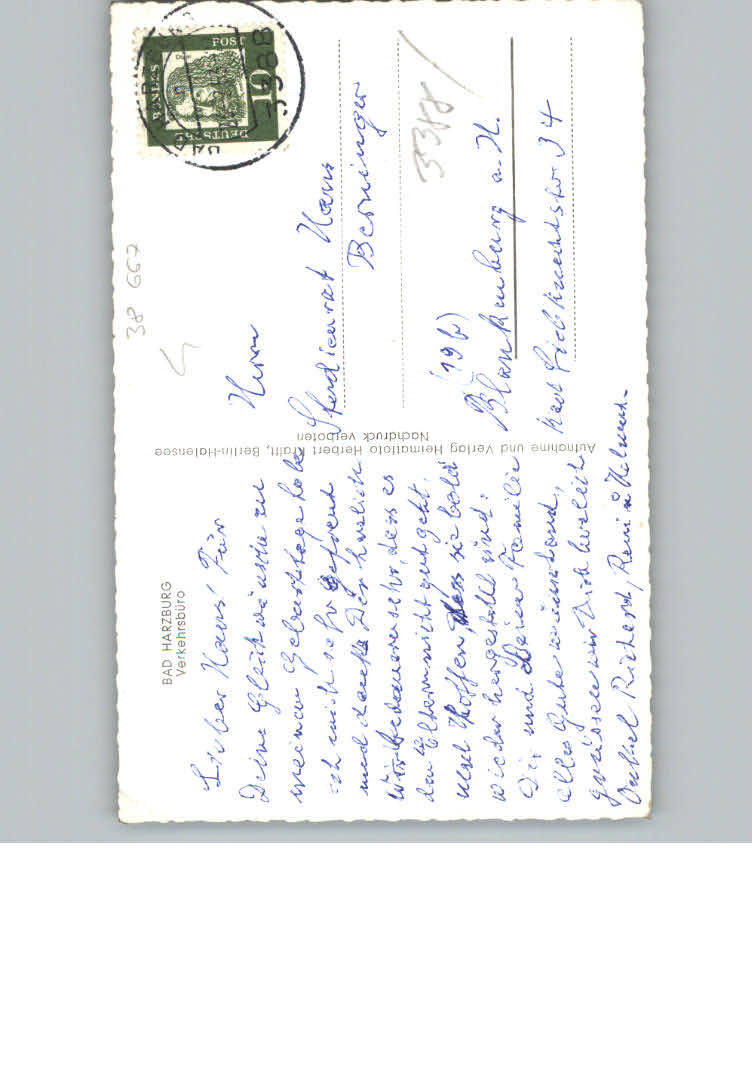 BAD HARZBURG
Verkehrsbüro
Lieber Hans! Für
Deine Glückwünsche zu
meinem Geburtstage habe
ich mich sehr gefreut
und danke Dir herzlich
Wir bedauern sehr, dass es
den Eltern nicht gut geht.
Und hoffen, dass sie bald
wieder hergestellt sind.
Dir und Deiner Familie
alles Gute wünschend,
grüssen wir Dich herzlich
Onkel Richard, Reni u. Helmut.
Aufnahme und Verlag Heimatfoto Herbert Kraift, Berlin-Halensee
Nachdruck verboten
38 667
DEUTSCHE
BUNDESPOST
10
Herrn
Hans
Berninger
3388
(19b)
Blankenburg a. H.
Karl Liebknechtstr 34